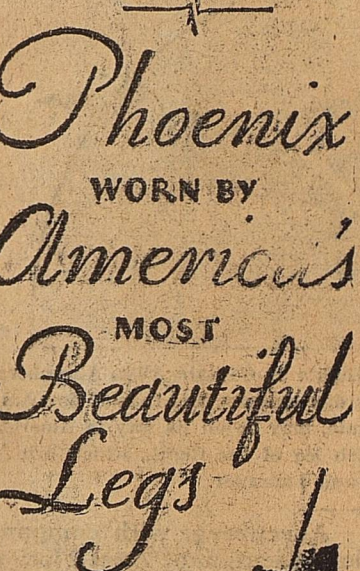 Phoenix
WORN BY
America's
MOST
Beautiful
Legs